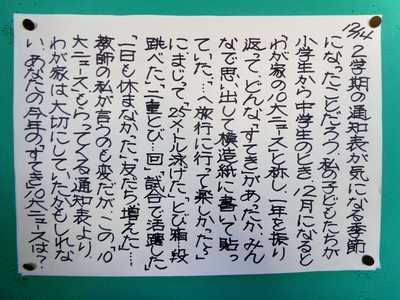 12/14
2学期の通知表が気になる季節
になったことだろう。私の子どもたちが
小学生から中学生のとき、12月になると
「わが家の10大ニュース」と称し、一年を振り
返って、どんな「すてき」があったか、みん
なで思い出して模造紙に書いて貼っ
ていた。「…へ旅行に行って楽しかった」
にまじって、「25メートル泳げた」「とび箱…段
跳べた」「二重とび…回」「試合で活躍した」
「一日も休まなかった」「友だち増えた」…
教師の私が言うのも変だが、この「10
大ニュース」もらってくる通知表より、
わが家は大切にしていたかもしれな
い。あなたの今年の「すてき」10大ニュースは?